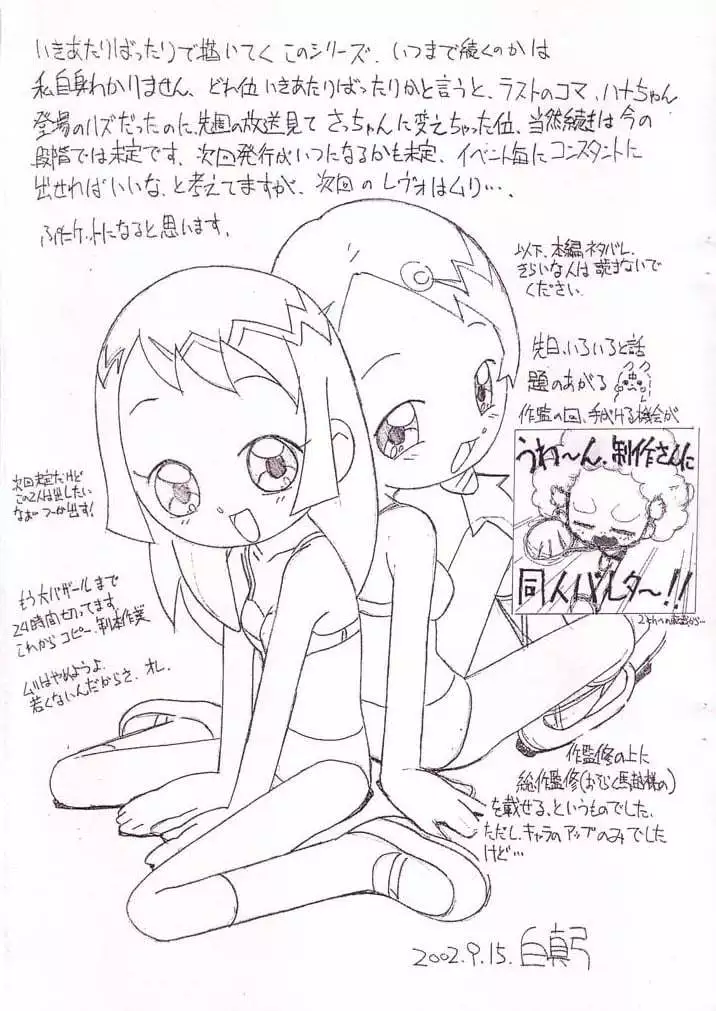 いきあたりばったりで描いてく このシリーズ、いつまで続くのかは
私自身わかりません、どれ位いきあたりばったりかと言うと、ラストのコマ、ハナちゃん
登場のハズだったのに、先週の放送見て さっちゃんに変えちゃった位、当然続きは今の
段階では未定です、次回発行がいつになるかも未定、イベント毎にコンスタントに
出せればいいな、と考えてますが、次回のレヴォはムリ…、
ぷにケットになると思います。
以下、本編ネタバレ、
きらいな人は読まないで
ください。
先日、いろいろと話
題のあがる
作監の回、手がける機会が
うわ〜ん、制作さんに
同人バレタ〜!!
次回未定だけど
この2人は出したい
なぁ つーか出す!
もう大バザールまで
24時間切ってます
これからコピー、製本作業
ムリはやめようよ
若くないんだからさ、オレ、
作監修の上に
総作監修(おそらく馬越様の)
を載せる、というものでした、
ただし、キャラのアップのみでした
けど…
2002.9.15.